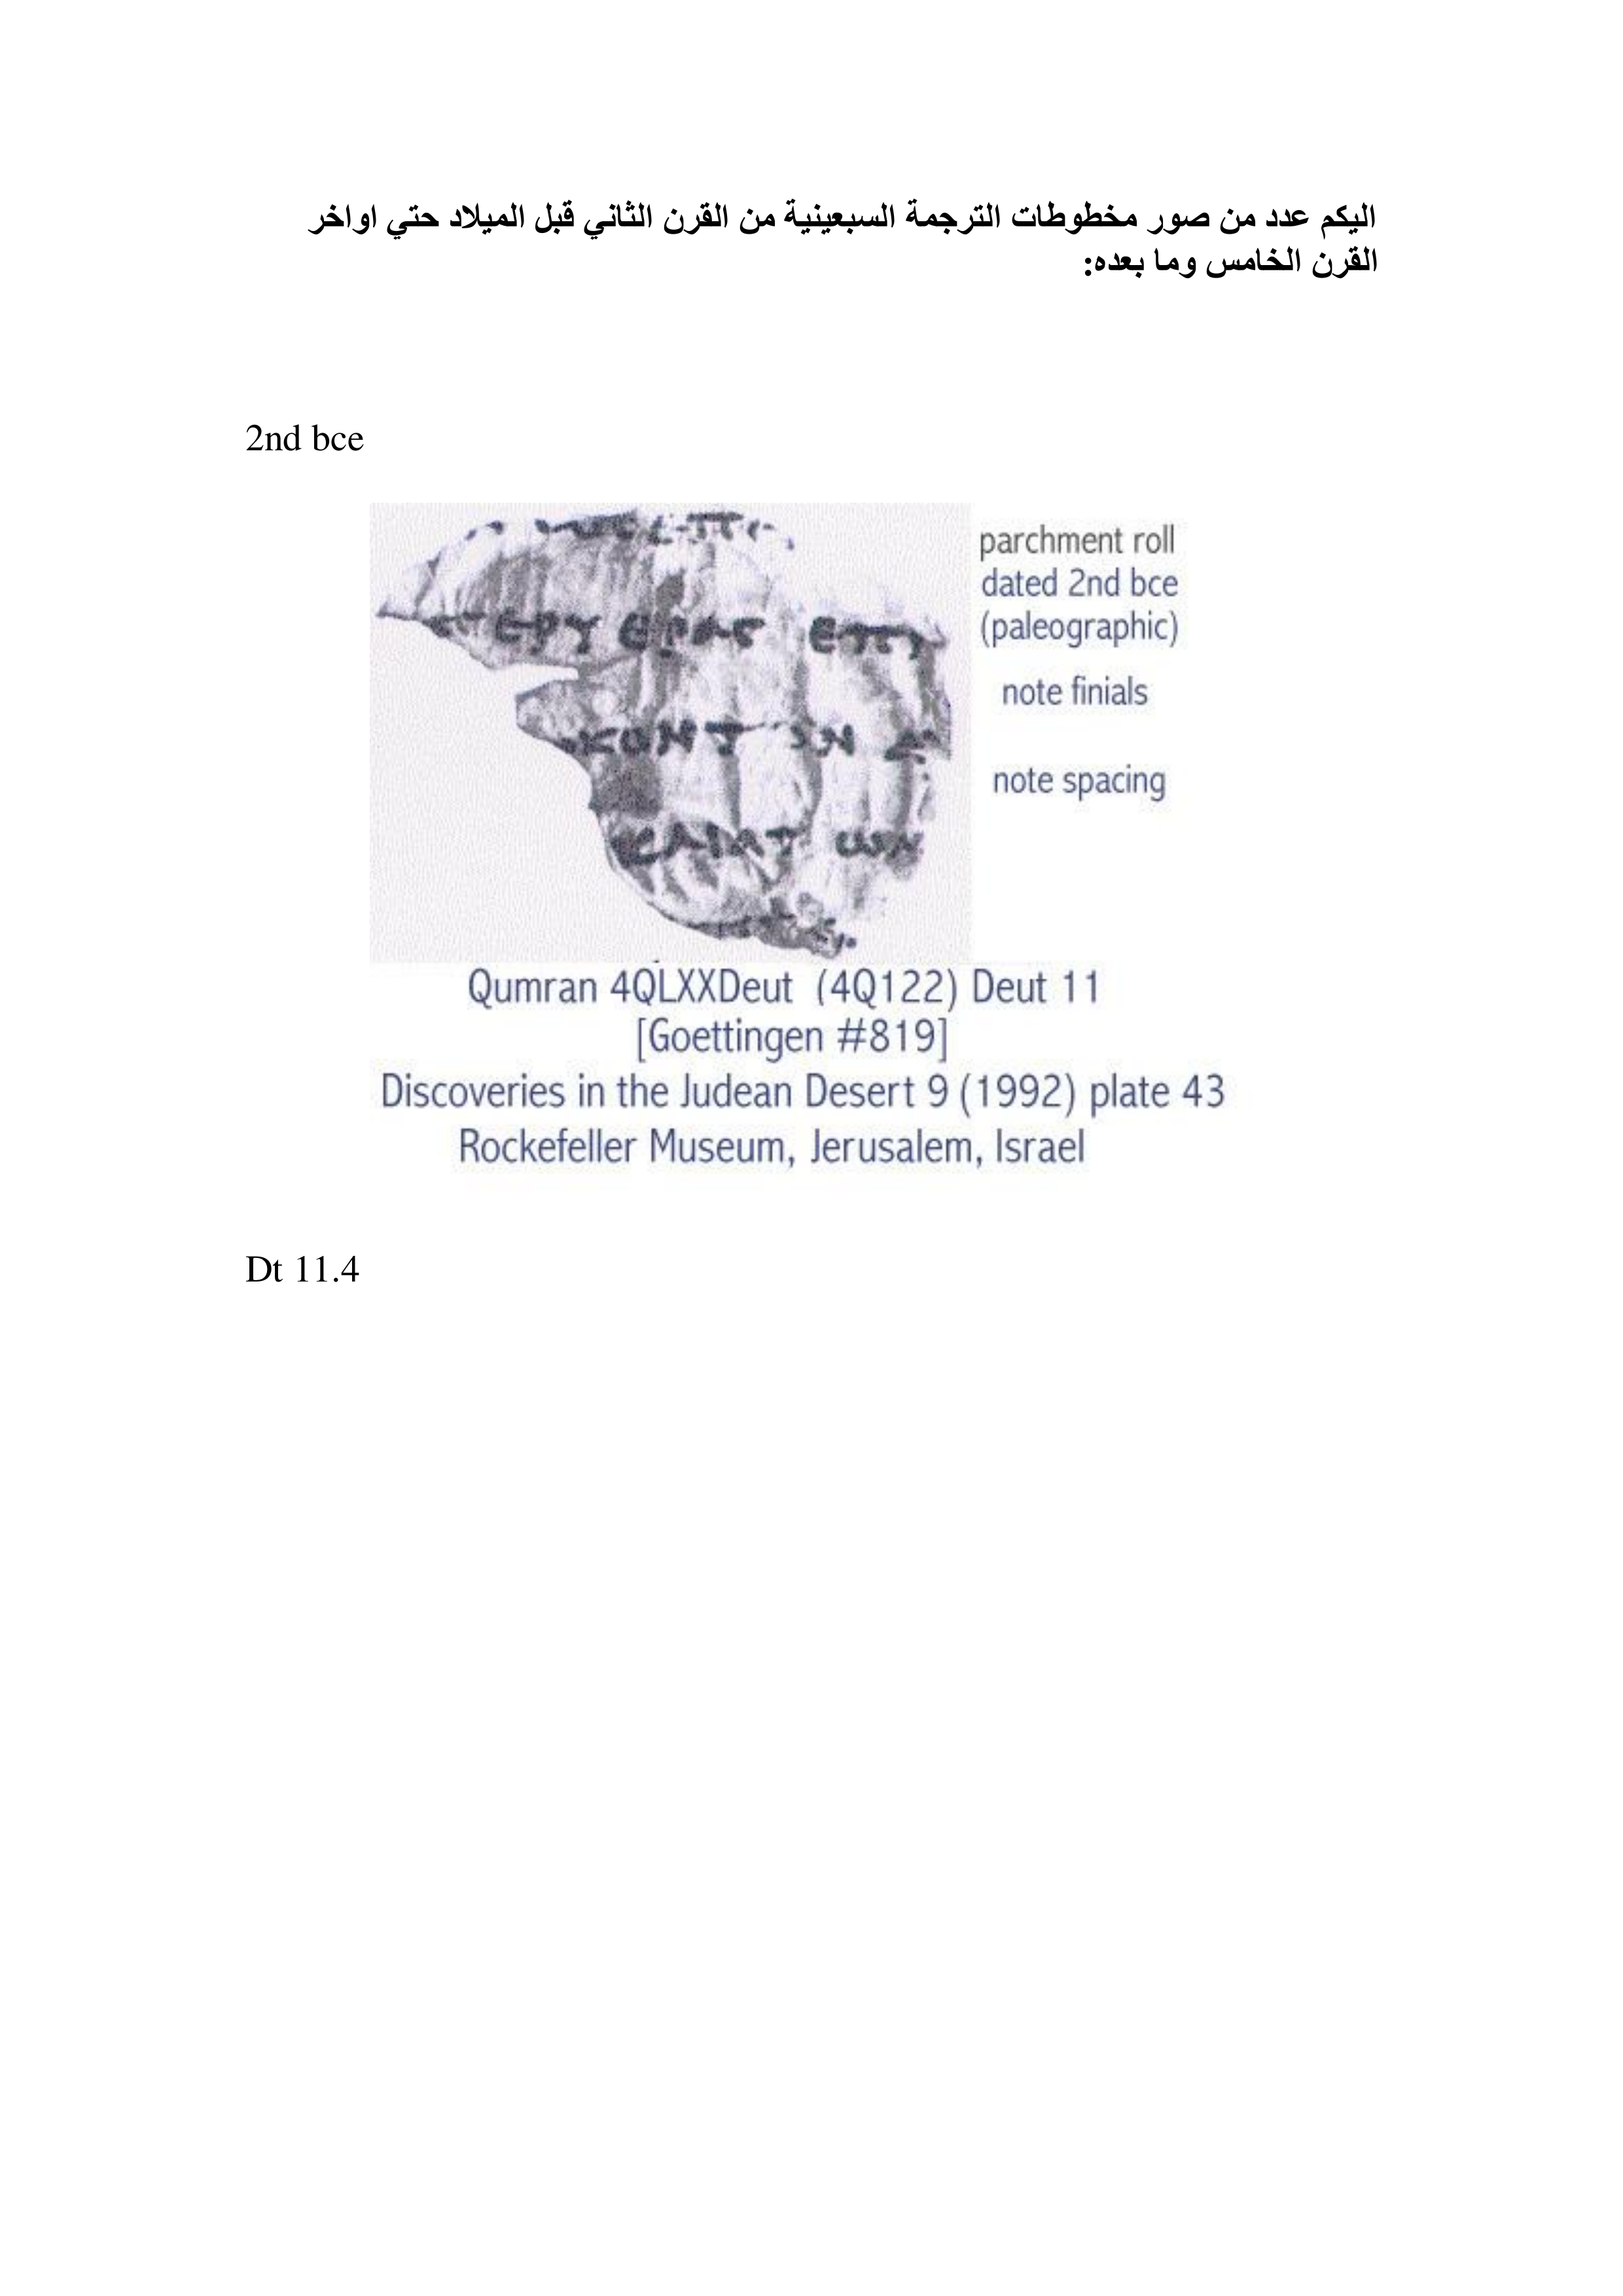 اليكم عدد من صور مخطوطات الترجمة السبعينية من القرن الثاني قبل الميلاد حتي اواخر
القرن الخامس وما بعده:
2nd bce
parchment roll
dated 2nd bce
(paleographic)
note finials
note spacing
ΕΡΥ ΕΡΑΣ ΕΠΙ
ΚΟΝΤ ΩΝ
ΚΑΙΑΤ ΩΝ
Qumran 4QLXXDeut (4Q122) Deut 11
[Goettingen #819]
Discoveries in the Judean Desert 9 (1992) plate 43
Rockefeller Museum, Jerusalem, Israel
Dt 11.4